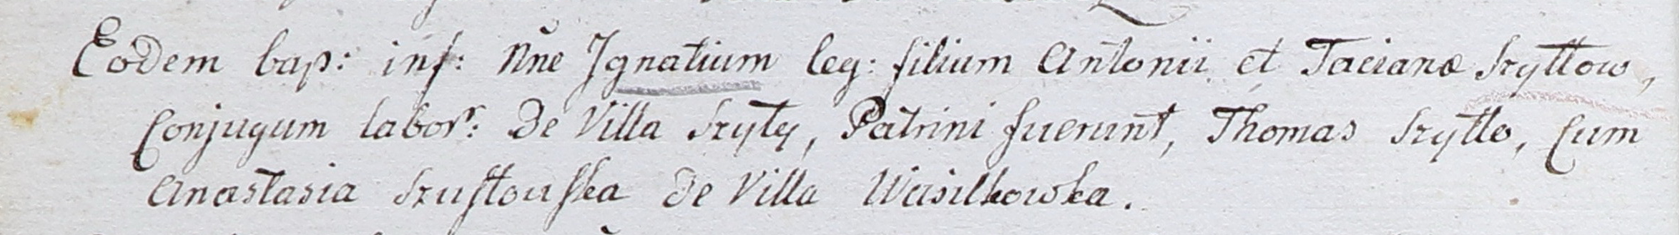 Eodem bap: inf: Nne Ignatium leg: filium Antonii et Tacianæ Szyttow,
Conjugum labor: De Villa Szyty, Patrini fuerunt, Thomas Szytto, Cum
Anastasia Szustouska De Villa Wasilkowka.